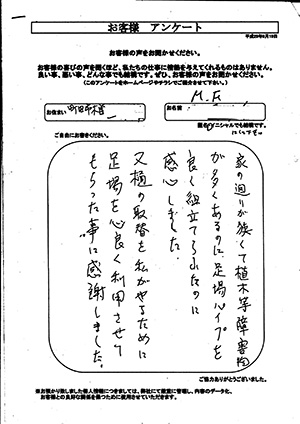 お客様 アンケート
平成29年6月19日
お客様の声をお聞かせください。
お客様の喜びの声を聞くほど、私たちの仕事に情熱を与えてくれるものはありません。
良い事、悪い事、どんな事でも結構です。ぜひ、お客様の声をお聞かせください。
(このアンケートをホームページやチラシでご紹介させて下さい。)
お住まい 町田市木曽
お名前 M.F.
ご自由にお書きください。
家の廻りが狭くて植木等障害物
が多くあるのに足場パイプを
良く組立てられたのに
感心しました。
又樋の取替を私がやるために
足場を心良く利用させて
もらった事に感謝しました。
ご協力ありがとうございました。
※お預かり致しました個人情報につきましては、弊社にて厳重に管理し、内容のデータ化、
お客様との良好な関係を保つために使用させていただきます。